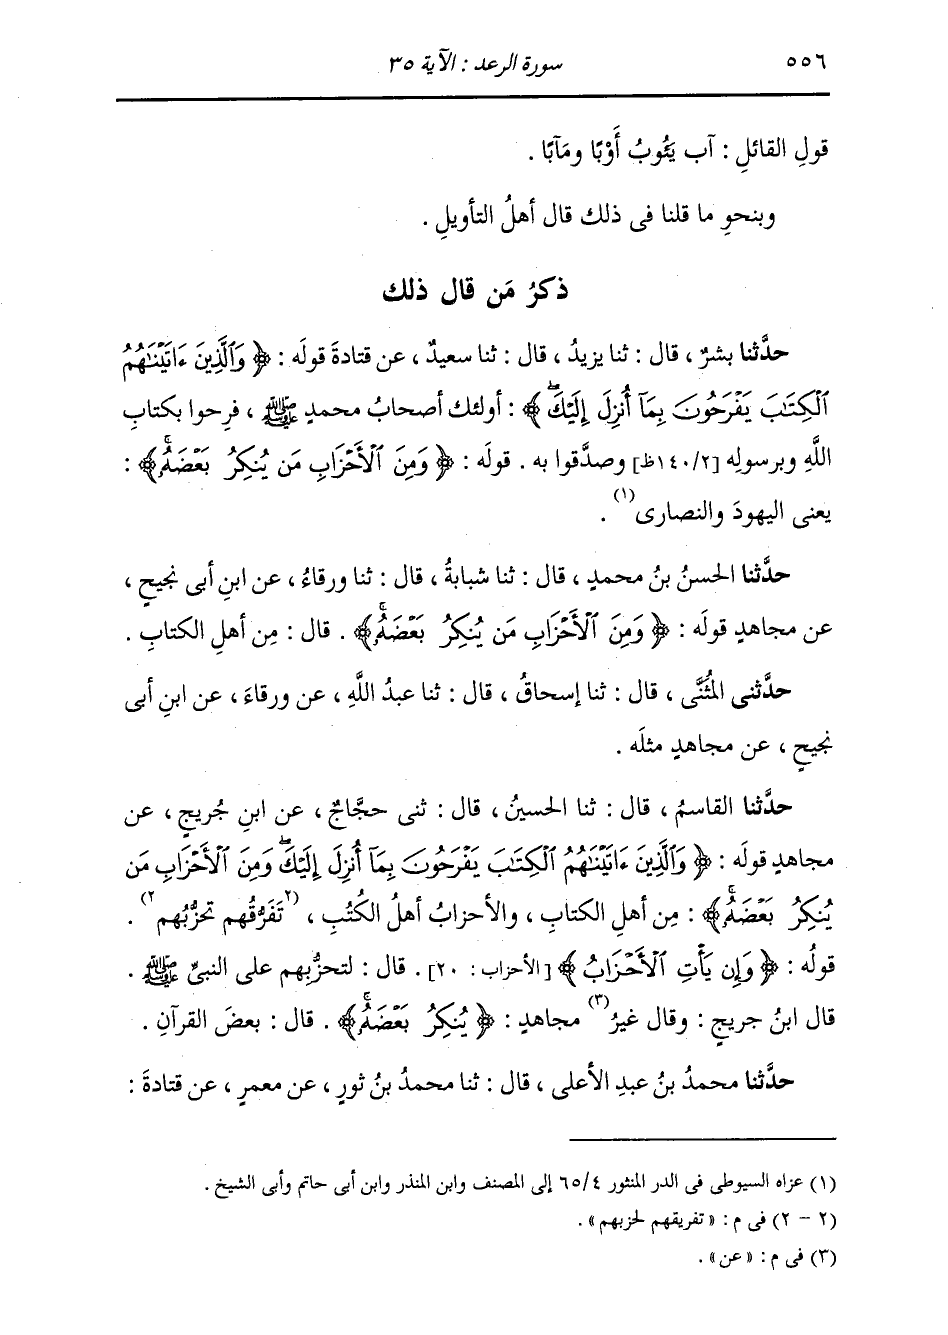 ٥٥٦ سورة الرعد : الآية ٣٥
قولِ القائلِ : آب يَئُوبُ أَوْبًا ومَآبًا .
وبنحوِ ما قلنا فى ذلك قال أهلُ التأويلِ .
ذكرُ مَن قال ذلك
حدَّثنا بشرٌ ، قال : ثنا يزيدُ ، قال : ثنا سعيدٌ ، عن قتادةَ قولَه : ﴿ وَٱلَّذِينَ ءَاتَيْنَٰهُمُ
ٱلْكِتَٰبَ يَفْرَحُونَ بِمَآ أُنزِلَ إِلَيْكَۖ ﴾ : أولئك أصحابُ محمدٍ ﷺ ، فرِحوا بكتابِ
اللَّهِ وبرسولِه [١٤٠/٢ظ] وصدَّقوا به . قولَه : ﴿ وَمِنَ ٱلْأَحْزَابِ مَن يُنكِرُ بَعْضَهُۥۚ ﴾ :
يعنى اليهودَ والنصارى(١) .
حدَّثنا الحسنُ بنُ محمدٍ ، قال : ثنا شبابةُ ، قال : ثنا ورقاءُ ، عن ابنِ أبى نجيحٍ ،
عن مجاهدٍ قولَه : ﴿ وَمِنَ ٱلْأَحْزَابِ مَن يُنكِرُ بَعْضَهُۥۚ ﴾ . قال : مِن أهلِ الكتابِ .
حدَّثنى المُثنَّى ، قال : ثنا إسحاقُ ، قال : ثنا عبدُ اللَّهِ ، عن ورقاءَ ، عن ابنِ أبى
نجيحٍ ، عن مجاهدٍ مثلَه .
حدَّثنا القاسمُ ، قال : ثنا الحسينُ ، قال : ثنى حجَّاجٌ ، عن ابنِ جُريجٍ ، عن
مجاهدٍ قولَه : ﴿ وَٱلَّذِينَ ءَاتَيْنَٰهُمُ ٱلْكِتَٰبَ يَفْرَحُونَ بِمَآ أُنزِلَ إِلَيْكَۖ وَمِنَ ٱلْأَحْزَابِ مَن
يُنكِرُ بَعْضَهُۥۚ ﴾ : مِن أهلِ الكتابِ ، والأحزابُ أهلُ الكُتُبِ ، (٢تَفَرُّقُهم تحزُّبُهم٢) .
قولُه : ﴿ وَإِن يَأْتِ ٱلْأَحْزَابُ ﴾ [الأحزاب : ٢٠] . قال : لتحزُّبِهم على النبىِّ ﷺ .
قال ابنُ جريجٍ : وقال غيرُ(٣) مجاهدٍ : ﴿ يُنكِرُ بَعْضَهُۥۚ ﴾ . قال : بعضَ القرآنِ .
حدَّثنا محمدُ بنُ عبدِ الأعلى ، قال : ثنا محمدُ بنُ ثورٍ ، عن معمرٍ ، عن قتادةَ :
(١) عزاه السيوطى فى الدر المنثور ٦٥/٤ إلى المصنف وابن المنذر وابن أبى حاتم وأبى الشيخ .
(٢ – ٢) فى م : « تفريقهم لحزبهم » .
(٣) فى م : « عن » .